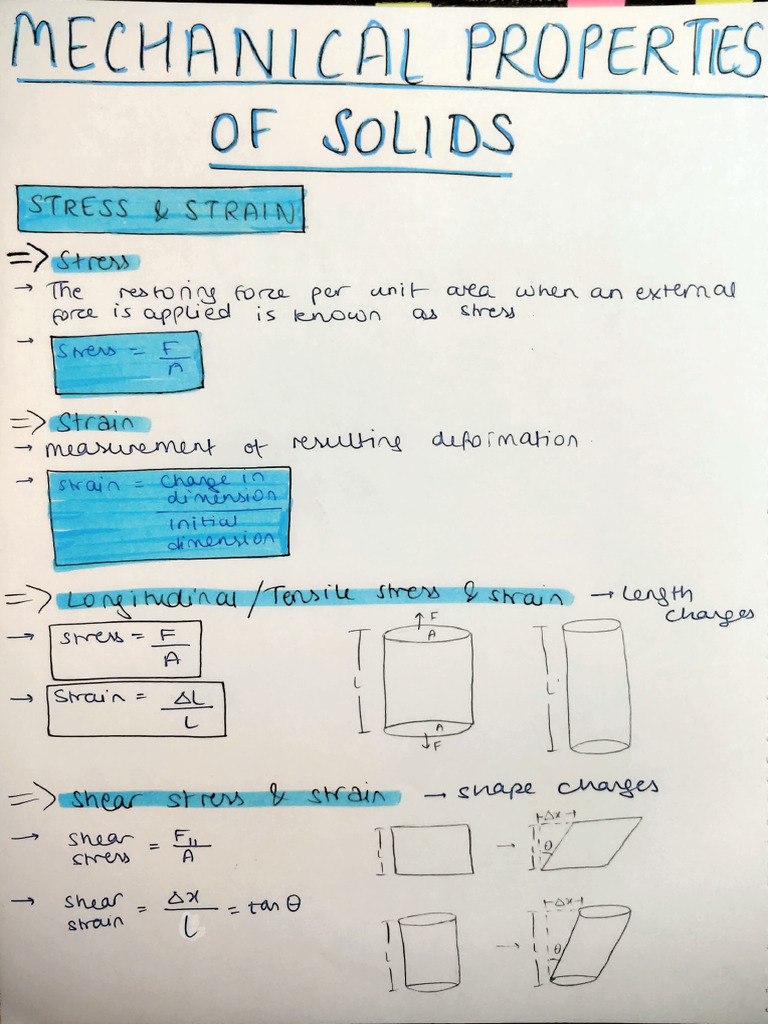 MECHANICAL PROPERTIES
OF SOLIDS
STRESS & STRAIN
=> Stress
→ The restoring force per unit area when an external
force is applied is known as stress.
→ Stress = F/A
=> Strain
→ measurement of resulting deformation.
→ Strain = change in dimension / initial dimension
=> Longitudinal/Tensile stress & strain → Length changes
→ Stress = F/A
→ Strain = ΔL/L
↑F
A
L
A
↓F
L'
=> Shear stress & strain → shape changes
→ Shear stress = F∥/A
L → Δx θ
→ Shear strain = Δx/L = tan θ
L → Δx θ